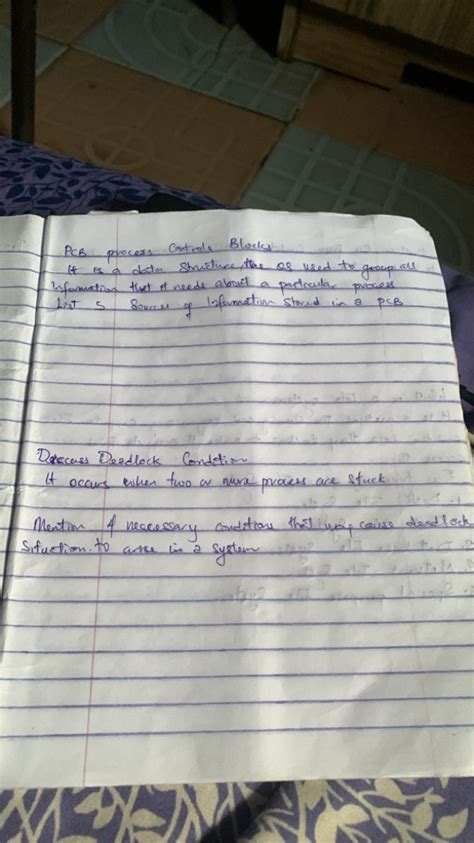 PCB process Controls Blocks
It is a data Structure the OS used to group all
Information that it needs about a particular process
List 5 Sources of Information Stored in a PCB
Discuss Deadlock Condition
It occurs when two or more process are stuck
Mention 4 necessary conditions that may cause deadlock
Situation to arise in a system